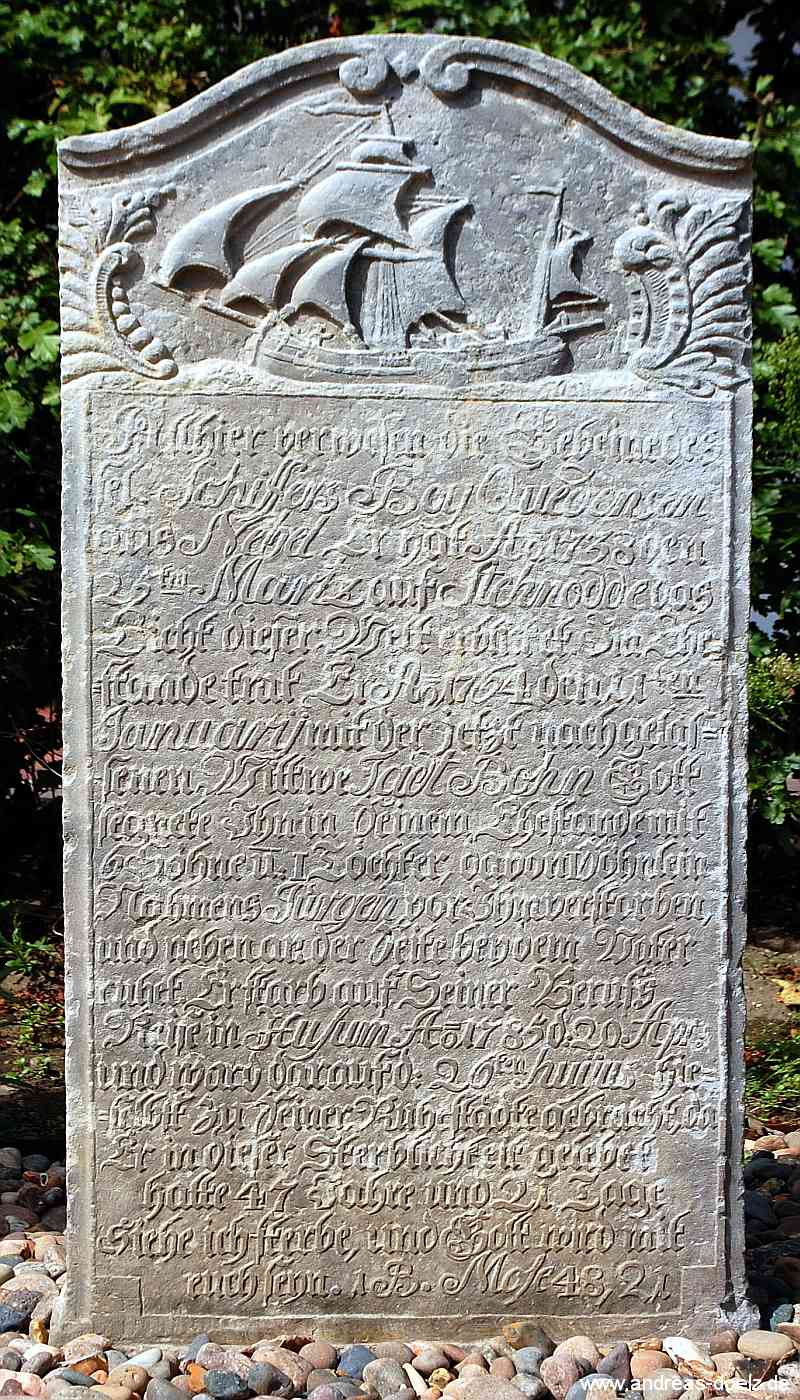 Allhier verwesen die Gebeine des
sel. Schiffers Boy Quedensen
aus Nebel Er hat Aõ 1738 den
25ten Martz auf Stenodde das
Licht dieser Welt erblicket. In Ehe=
=stande trat Er Aõ 1764 den 21ten
Januarij mit der jetzt nachgelas=
=senen Wittwe Jadt Bohn Gott
segnete Ihn in seinem Ehestande mit
6 Söhne u. 1 Tochter, davon 1 Söhnlein
Nahmens Jürgen, vor Ihm verstorben,
und neben an der Seite bey dem Vater
ruhet Er starb auf Seiner Berufs
Reise in Husum Aõ 1785 d: 20 Apr:
und ward darauf d: 26ten Junius hie=
=selbst zu seiner Ruhestädte gebracht, da
Er in dieser Sterblichkeit gelebet
hatte 47 Jahre und 21 Tage
Siehe ich sterbe, und Gott wird mit
euch seyn. 1 B. Mose 48, 21
www.andreas-doelz.de